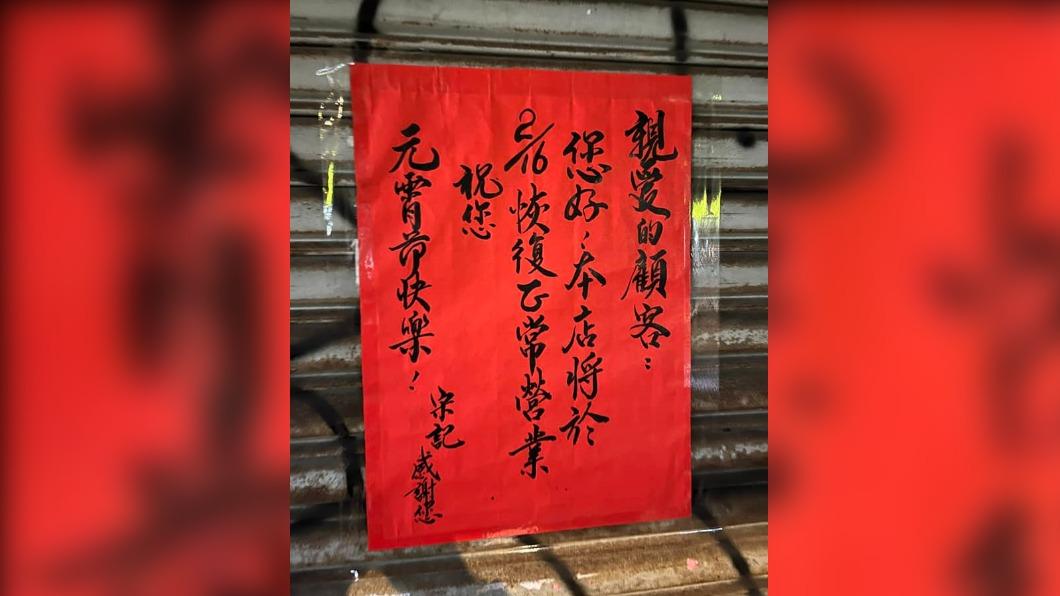 親愛的顧客：
您好！本店將於
2/16恢復正常營業
祝您
元宵节快樂！
宋記
感謝您